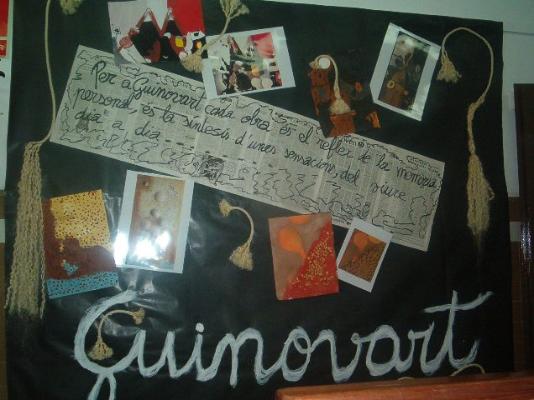 Per a Guinovart cada obra és el reflex de la memòria
personal, és la síntesis d'unes sensacions del viure
dia a dia
Guinovart